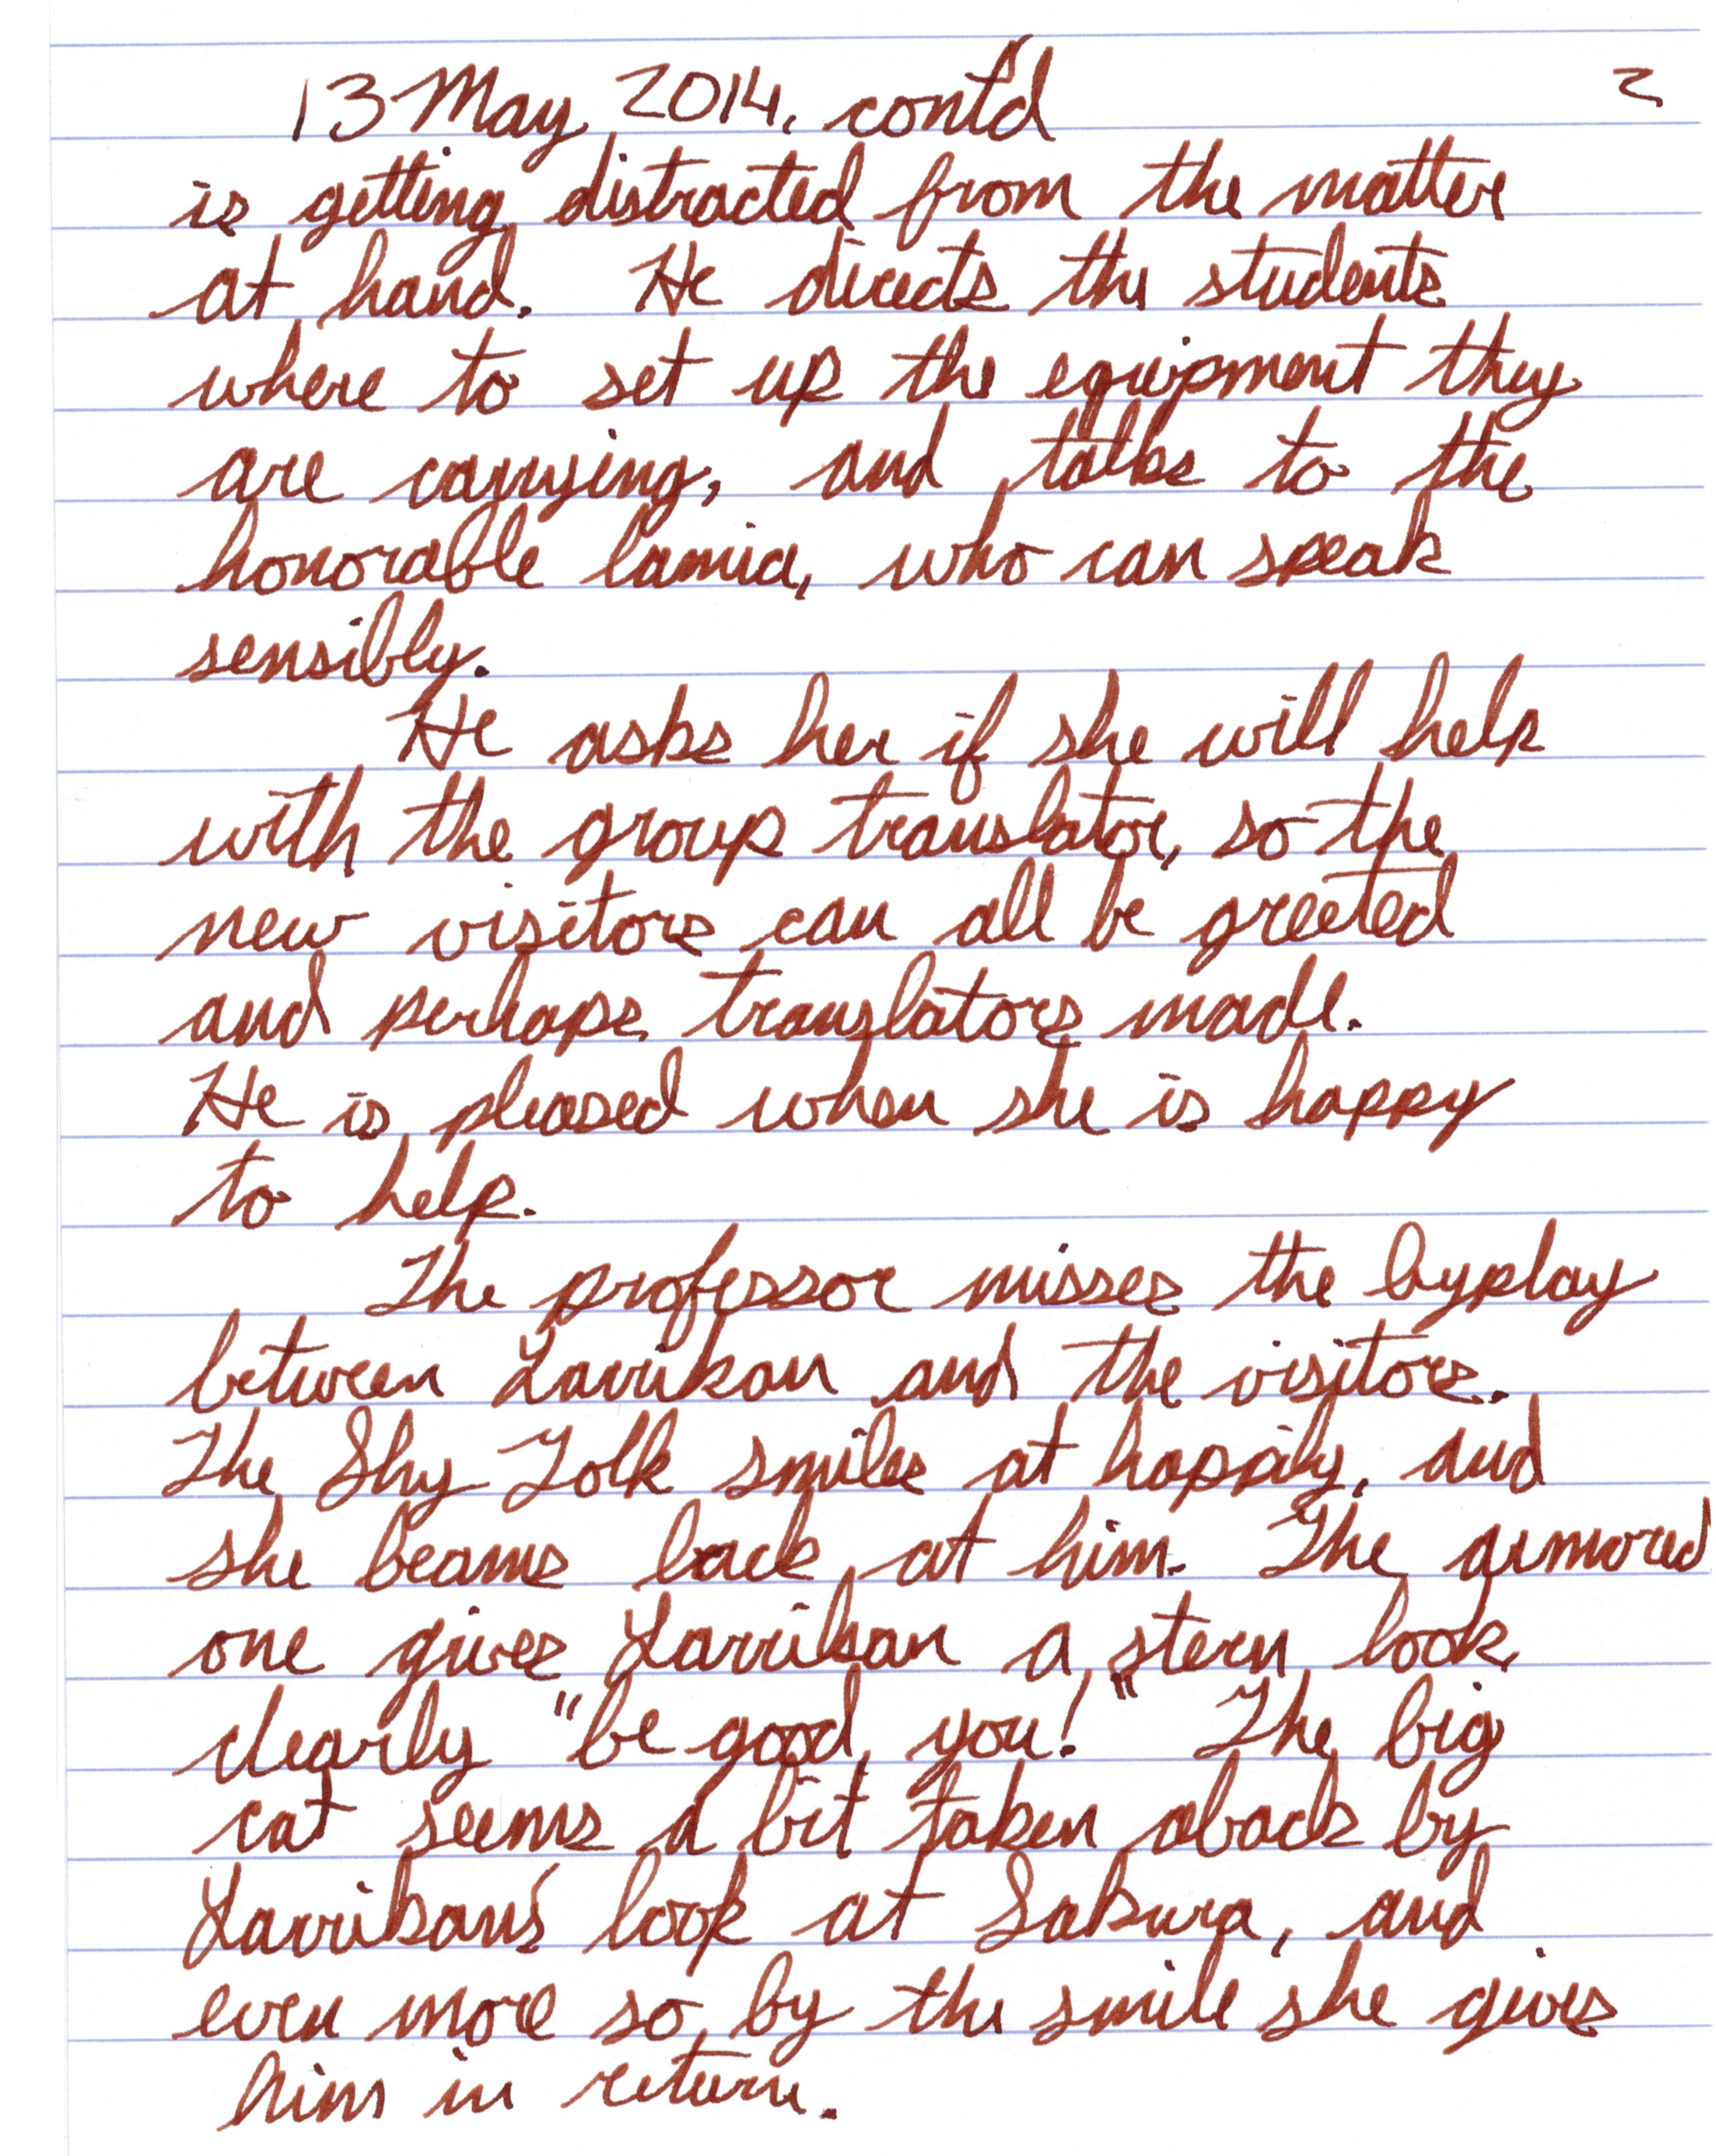 13 May 2014, cont'd 2
is getting distracted from the matter
at hand. He directs the students
where to set up the equipment they
are carrying, and talks to the
honorable lamia, who can speak
sensibly.
He asks her if she will help
with the group translator, so the
new visitors can all be greeted
and perhaps translators made.
He is pleased when she is happy
to help.
The professor misses the byplay
between Larrikan and the visitors.
The Shy Folk smiles at happily, and
she beams back at him. The armored
one gives Larrikan a stern look,
clearly "be good, you!" The big
cat seems a bit taken aback by
Larrikan's look at Sakura, and
even more so by the smile she gives
him in return.